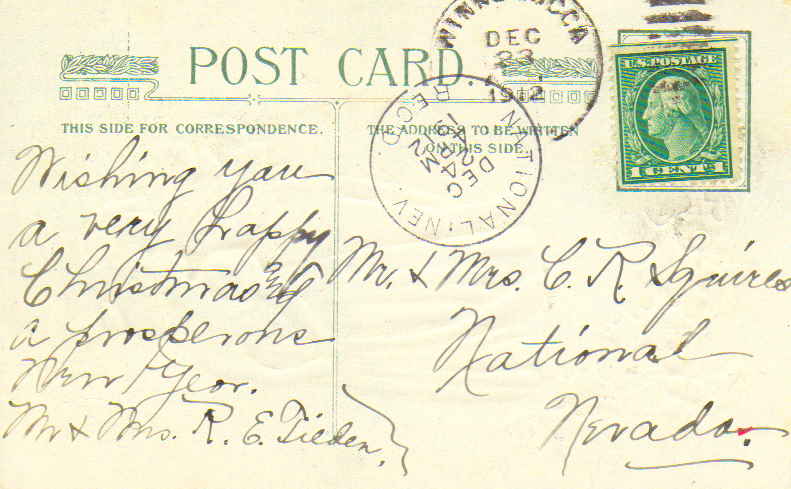 POST CARD.
THIS SIDE FOR CORRESPONDENCE.
THE ADDRESS TO BE WRITTEN
ON THIS SIDE.
WINNEMUCCA
DEC
23
1912
NATIONAL, NEV.
REC'D.
DEC
24
AM
1912
U.S. POSTAGE
1 CENT 1
Wishing you
a very happy
Christmas &
a prosperous
New Year.
Mr & Mrs. R. E. Tilden.
Mr. & Mrs. C. R. Squires
National
Nevada.